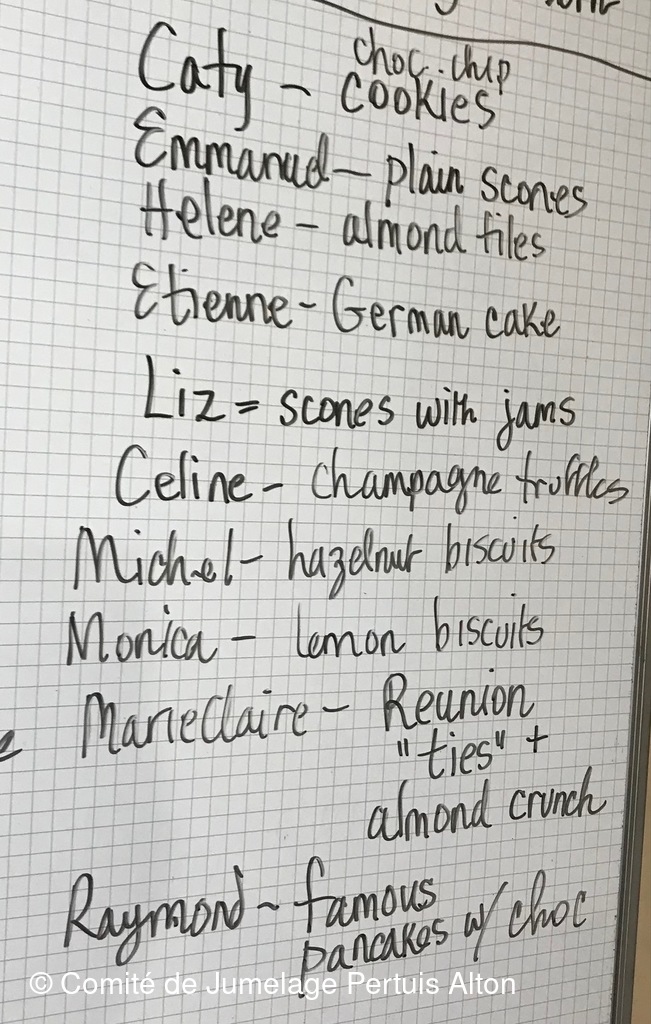 choc. chip
Caty - cookies
Emmanuel - plain scones
Helene - almond tiles
Etienne - German cake
Liz = scones with jams
Celine - champagne truffles
Michel - hazelnut biscuits
Monica - lemon biscuits
MarieClaire - Reunion
"ties" +
almond crunch
Raymond - famous
pancakes w/ choc
© Comité de Jumelage Pertuis Alton